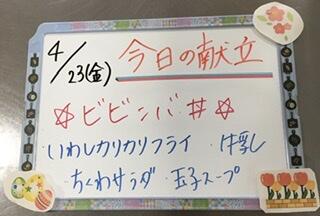 4/23(金) 今日の献立
☆ビビンバ丼☆
いわしカリカリフライ ・牛乳
・ちくわサラダ ・玉子スープ